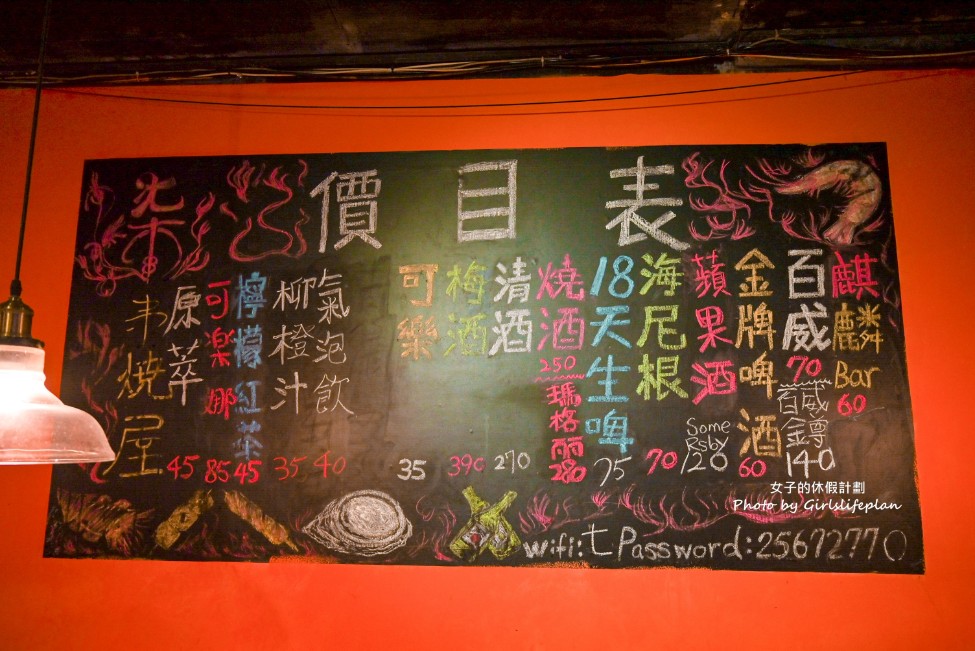 價目表
麒麟Bar
60
百威
70
百威金尊
140
金牌啤酒
60
蘋果酒
Some
Rsby
120
海尼根
70
18天生啤
75
燒酒
250
瑪格丽
280
清酒
270
梅酒
390
可樂
35
氣泡飲
40
柳橙汁
35
檸檬紅茶
45
可樂娜
85
原萃
45
串燒屋
wifi:七 Password:25672770
女子的休假計劃
Photo by Girlslifeplan